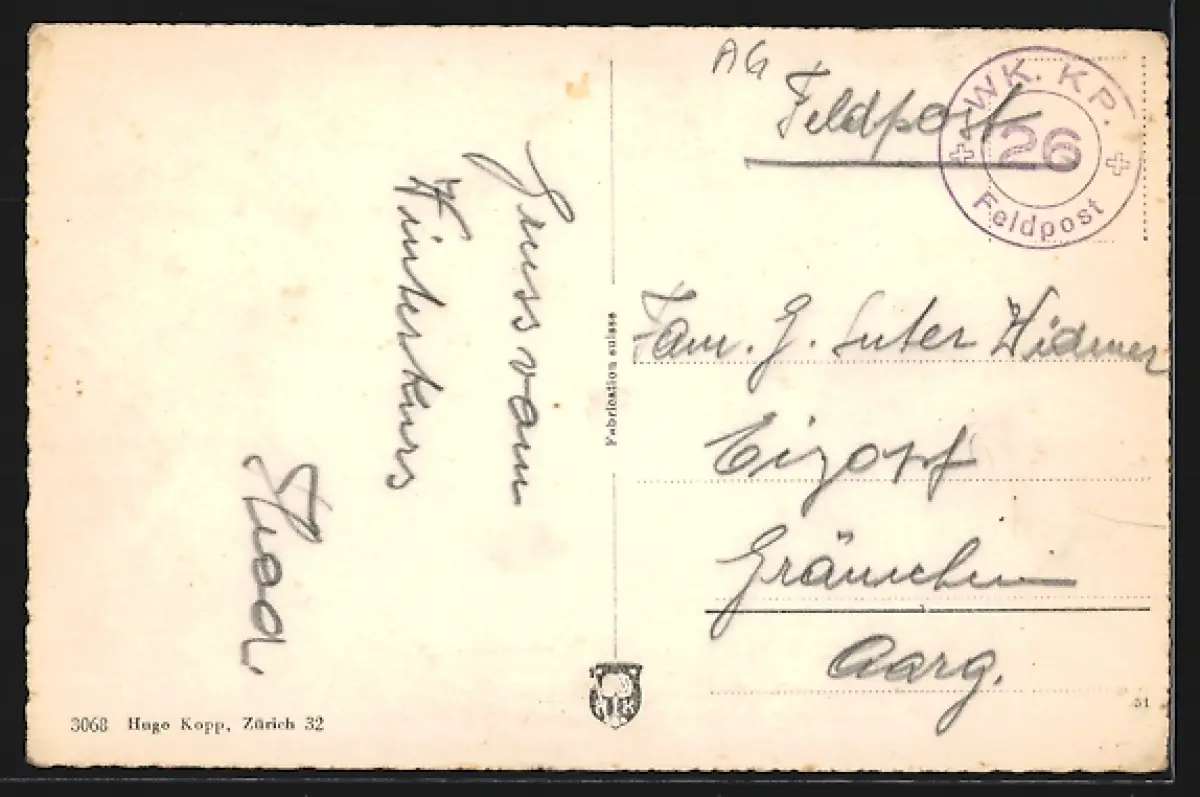 AG
Feldpost
WK. KP.
26
Feldpost
Gruss vom
Winterkurs
Fabrication suisse
Fam. G. Suter Widmer
Gränichen
Aarg.
HK
51
3068 Hugo Kopp, Zürich 32